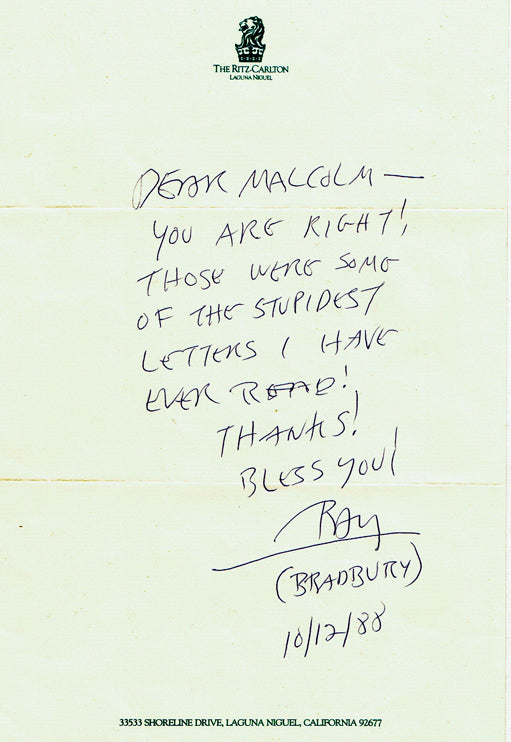 THE RITZ-CARLTON
LAGUNA NIGUEL
DEAR MALCOLM —
YOU ARE RIGHT!
THOSE WERE SOME
OF THE STUPIDEST
LETTERS I HAVE
EVER READ!
THANKS!
BLESS YOU!
RAY
(BRADBURY)
10/12/88
33533 SHORELINE DRIVE, LAGUNA NIGUEL, CALIFORNIA 92677